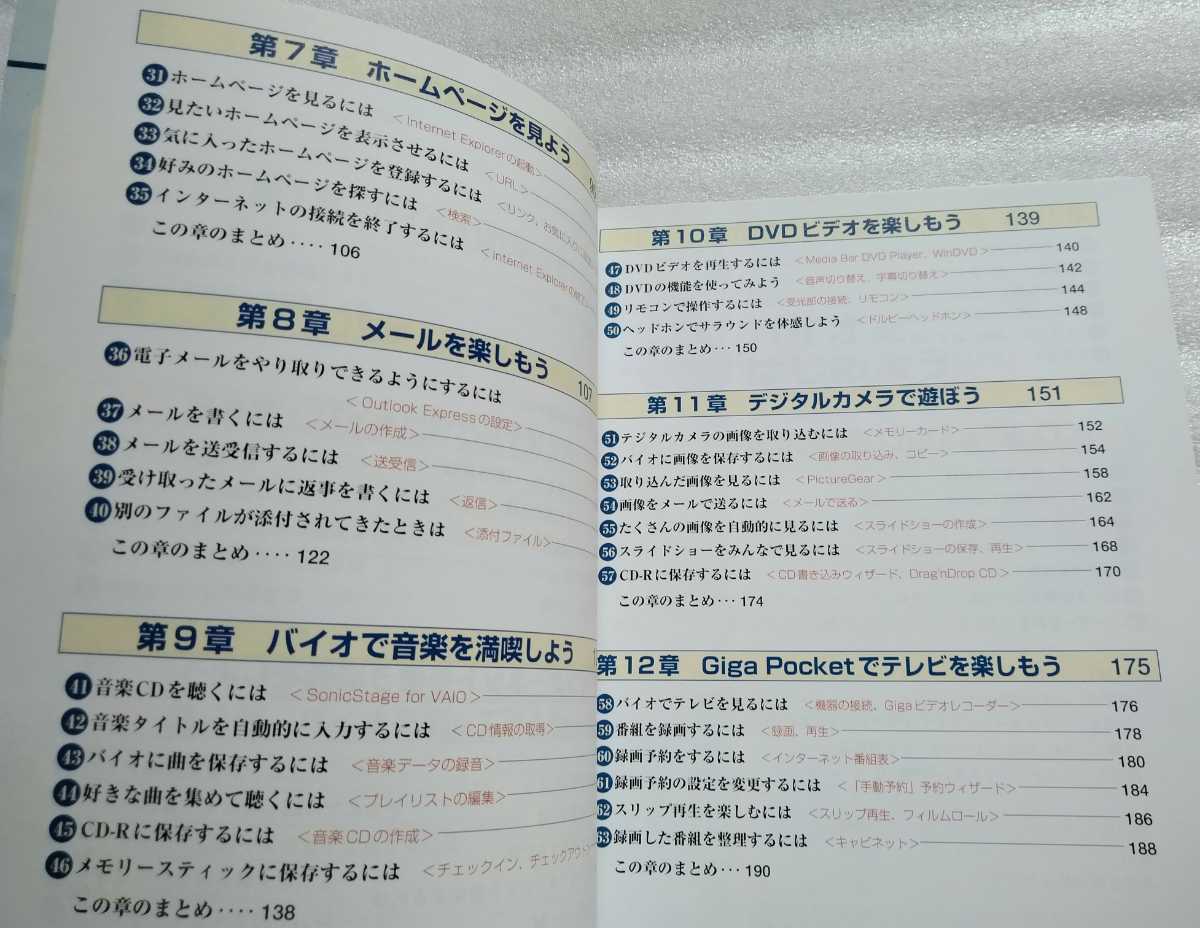 第7章 ホームページを見よう
31 ホームページを見るには <Internet Explorerの起動>
32 見たいホームページを表示させるには <URL>
33 気に入ったホームページを登録するには <リンク、お気に入り
34 好みのホームページを探すには <検索>
35 インターネットの接続を終了するには <Internet Explorerの終了
この章のまとめ‥‥106
第8章 メールを楽しもう 107
36 電子メールをやり取りできるようにするには
<Outlook Expressの設定>
37 メールを書くには <メールの作成>
38 メールを送受信するには <送受信>
39 受け取ったメールに返事を書くには <返信>
40 別のファイルが添付されてきたときは <添付ファイル>
この章のまとめ‥‥122
第9章 バイオで音楽を満喫しよう
41 音楽CDを聴くには <SonicStage for VAIO>
42 音楽タイトルを自動的に入力するには <CD情報の取得>
43 バイオに曲を保存するには <音楽データの録音>
44 好きな曲を集めて聴くには <プレイリストの編集>
45 CD-Rに保存するには <音楽CDの作成>
46 メモリースティックに保存するには <チェックイン、チェックアウト
この章のまとめ‥‥138
第10章 DVDビデオを楽しもう 139
47 DVDビデオを再生するには <Media Bar DVD Player、WinDVD> 140
48 DVDの機能を使ってみよう <音声切り替え、字幕切り替え> 142
49 リモコンで操作するには <受光部の接続、リモコン> 144
50 ヘッドホンでサラウンドを体感しよう <ドルビーヘッドホン> 148
この章のまとめ‥‥150
第11章 デジタルカメラで遊ぼう 151
51 デジタルカメラの画像を取り込むには <メモリーカード> 152
52 バイオに画像を保存するには <画像の取り込み、コピー> 154
53 取り込んだ画像を見るには <PictureGear> 158
54 画像をメールで送るには <メールで送る> 162
55 たくさんの画像を自動的に見るには <スライドショーの作成> 164
56 スライドショーをみんなで見るには <スライドショーの保存、再生> 168
57 CD-Rに保存するには <CD書き込みウィザード、Drag'nDrop CD> 170
この章のまとめ‥‥174
第12章 Giga Pocketでテレビを楽しもう 175
58 バイオでテレビを見るには <機器の接続、Gigaビデオレコーダー> 176
59 番組を録画するには <録画、再生> 178
60 録画予約をするには <インターネット番組表> 180
61 録画予約の設定を変更するには <「手動予約」予約ウィザード> 184
62 スリップ再生を楽しむには <スリップ再生、フィルムロール> 186
63 録画した番組を整理するには <キャビネット> 188
この章のまとめ‥‥190